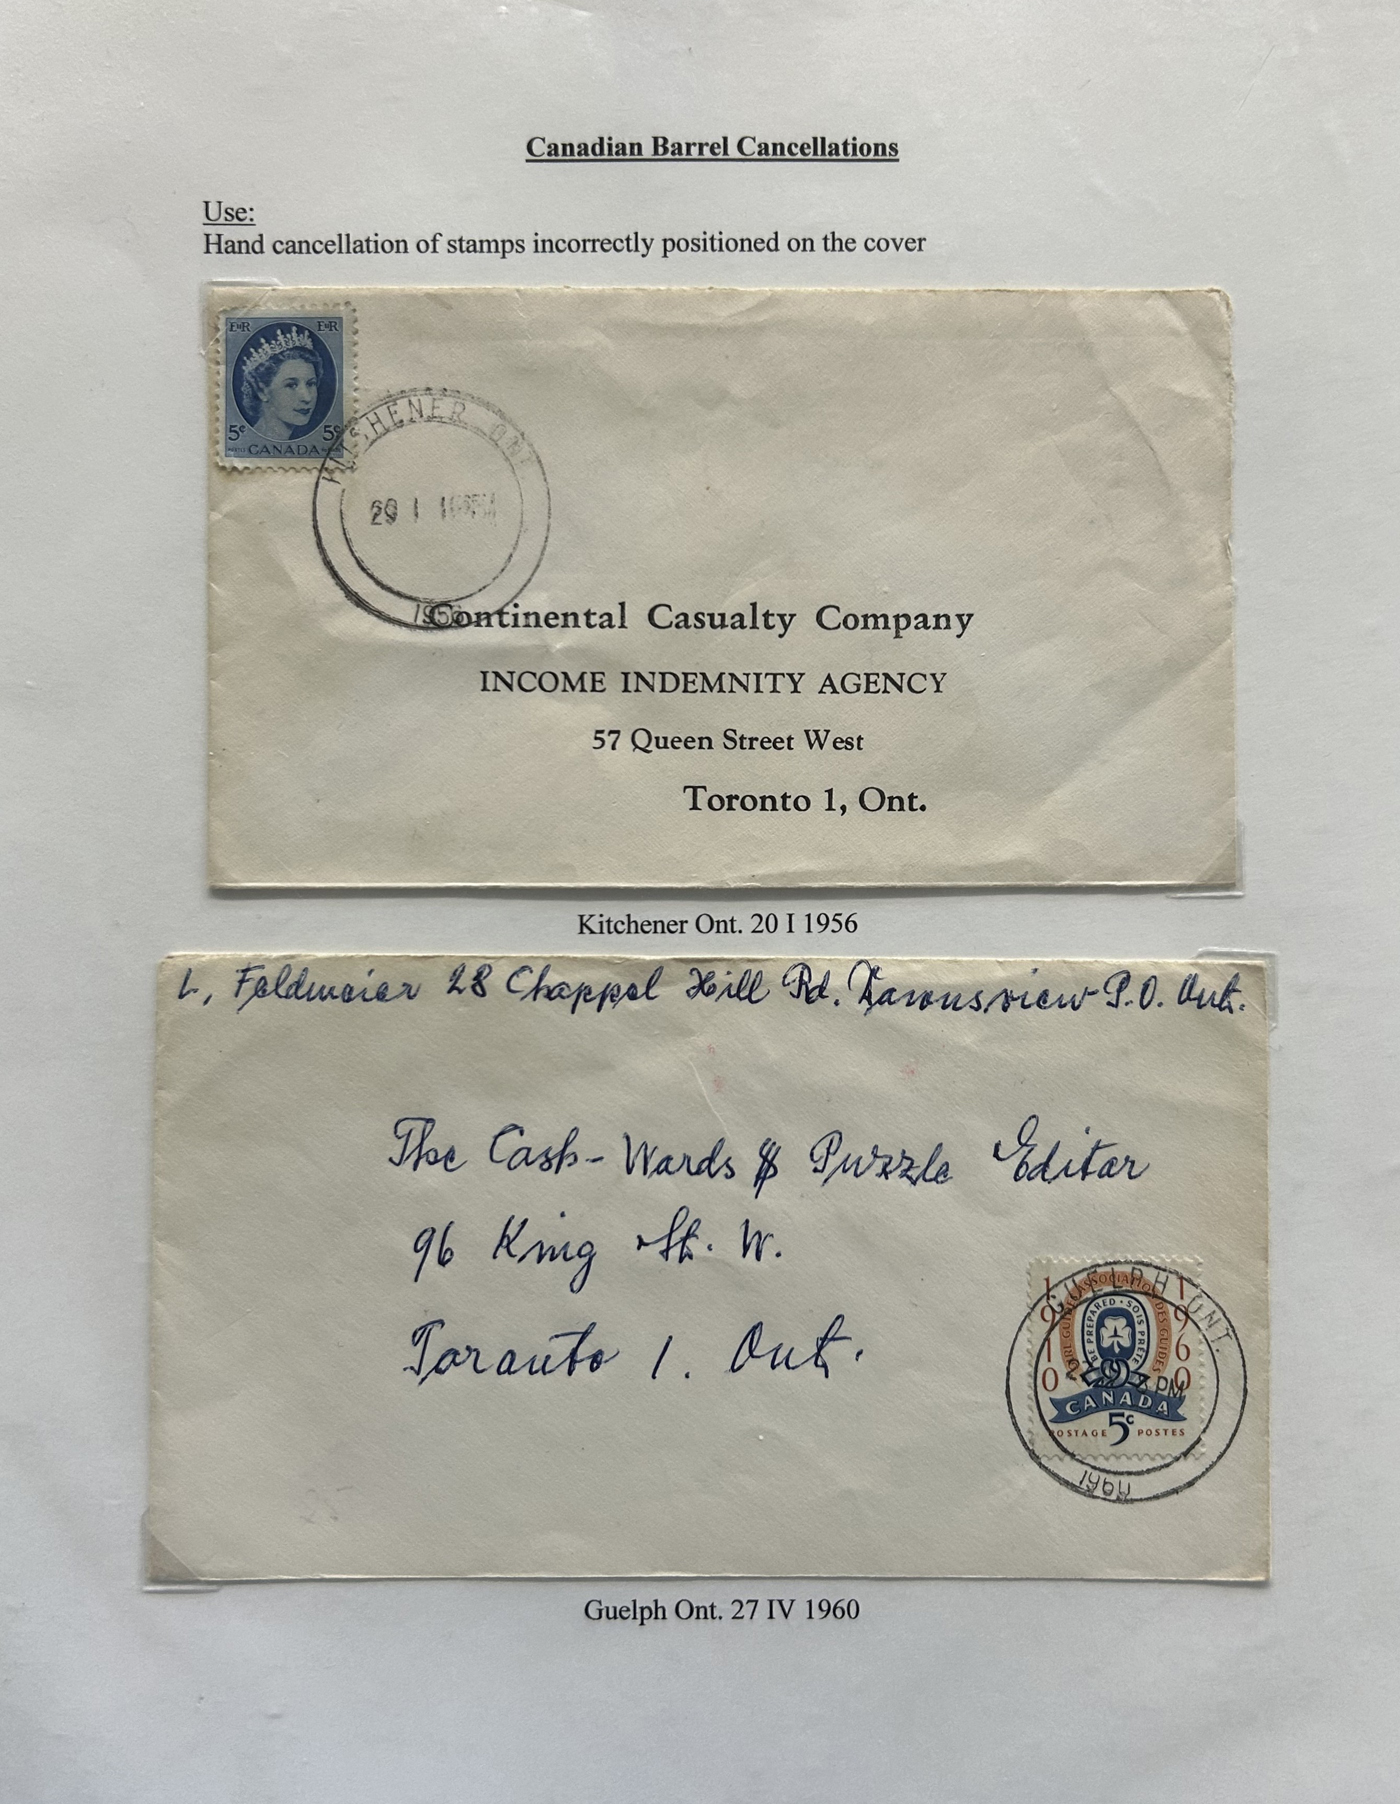 Canadian Barrel Cancellations
Use:
Hand cancellation of stamps incorrectly positioned on the cover
EIIR EIIR
5¢ 5¢
CANADA
KITCHENER ONT
1956
Continental Casualty Company
INCOME INDEMNITY AGENCY
57 Queen Street West
Toronto 1, Ont.
Kitchener Ont. 20 I 1956
L. Feldmeier 28 Chappel Hill Rd. P.O. Ont.
The Cash-Words $ Puzzle Editor
96 King St. W.
Toronto 1. Ont.
GUELPH ONT.
1910 1960
ASSOCIATION DES GUIDES
BE PREPARED • SOIS PRÊTE
PM
CANADA
POSTAGE 5¢ POSTES
1960
Guelph Ont. 27 IV 1960